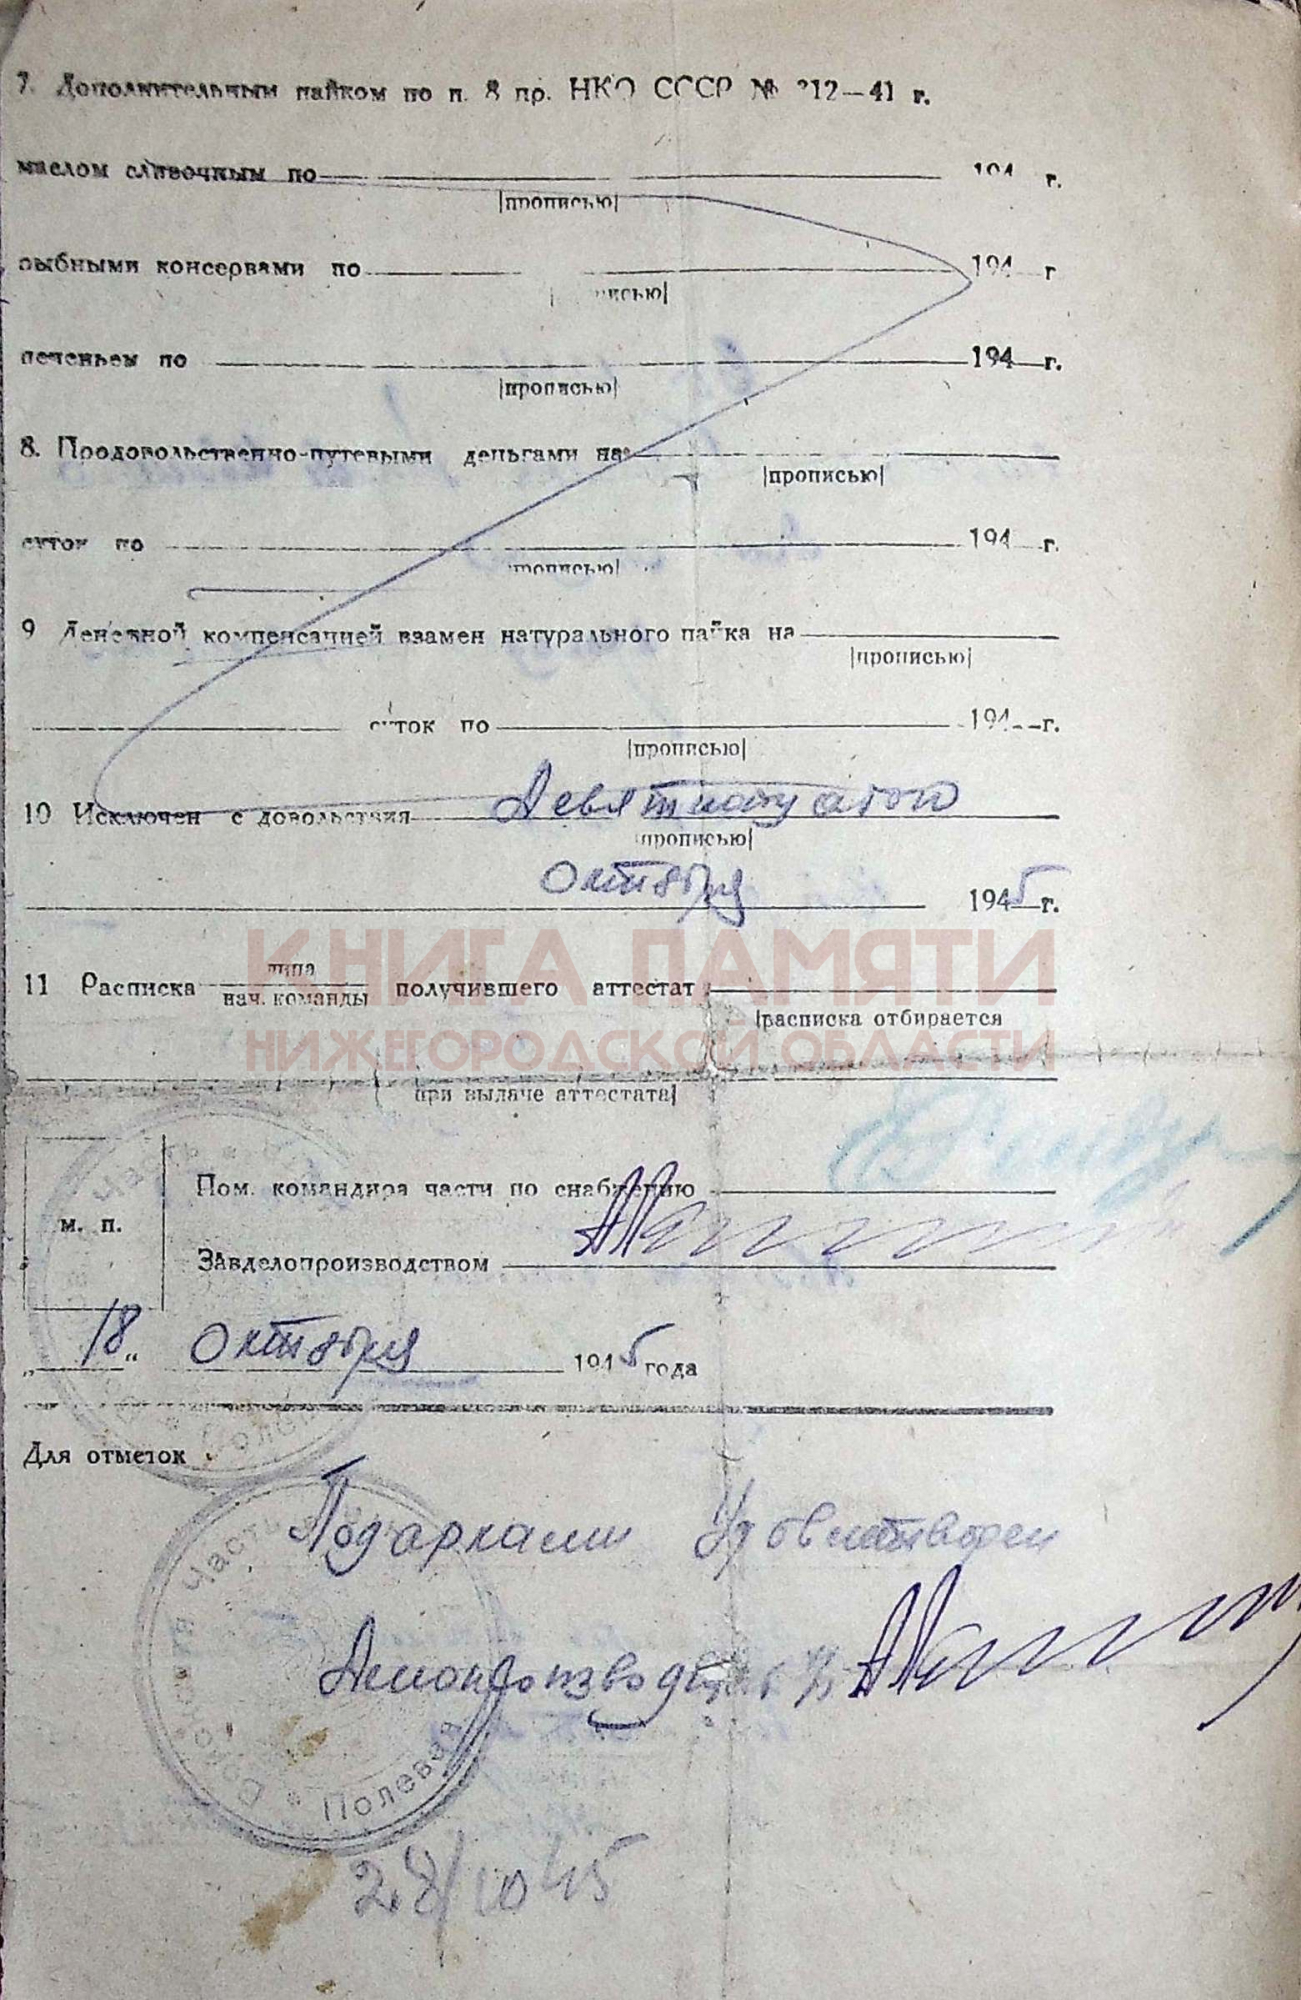 7. Дополнительным пайком по п. 8 пр. НКО СССР № 312—41 г.
маслом сливочным по 194 г.
|прописью|
рыбными консервами по 194 г
|прописью|
печеньем по 194 г.
|прописью|
8. Продовольственно-путевыми деньгами на
|прописью|
суток по 194 г.
прописью|
9 Денежной компенсацией взамен натурального пайка на
|прописью|
суток по 194 г.
|прописью|
10 Исключен с довольствия Девятнадцатого
прописью|
Октября 1945 г.
КНИГА ПАМЯТИ
НИЖЕГОРОДСКОЙ ОБЛАСТИ
11 Расписка лица
нач. команды получившего аттестат
|расписка отбирается
при выдаче аттестата|
Пом. командира части по снабжению
м. п.
Завделопроизводством
„18“ Октября 1945 года
Для отметок
Подарками Удовлетворен
Делопроизводитель
Войсковая Часть * Полевая
28/10 45